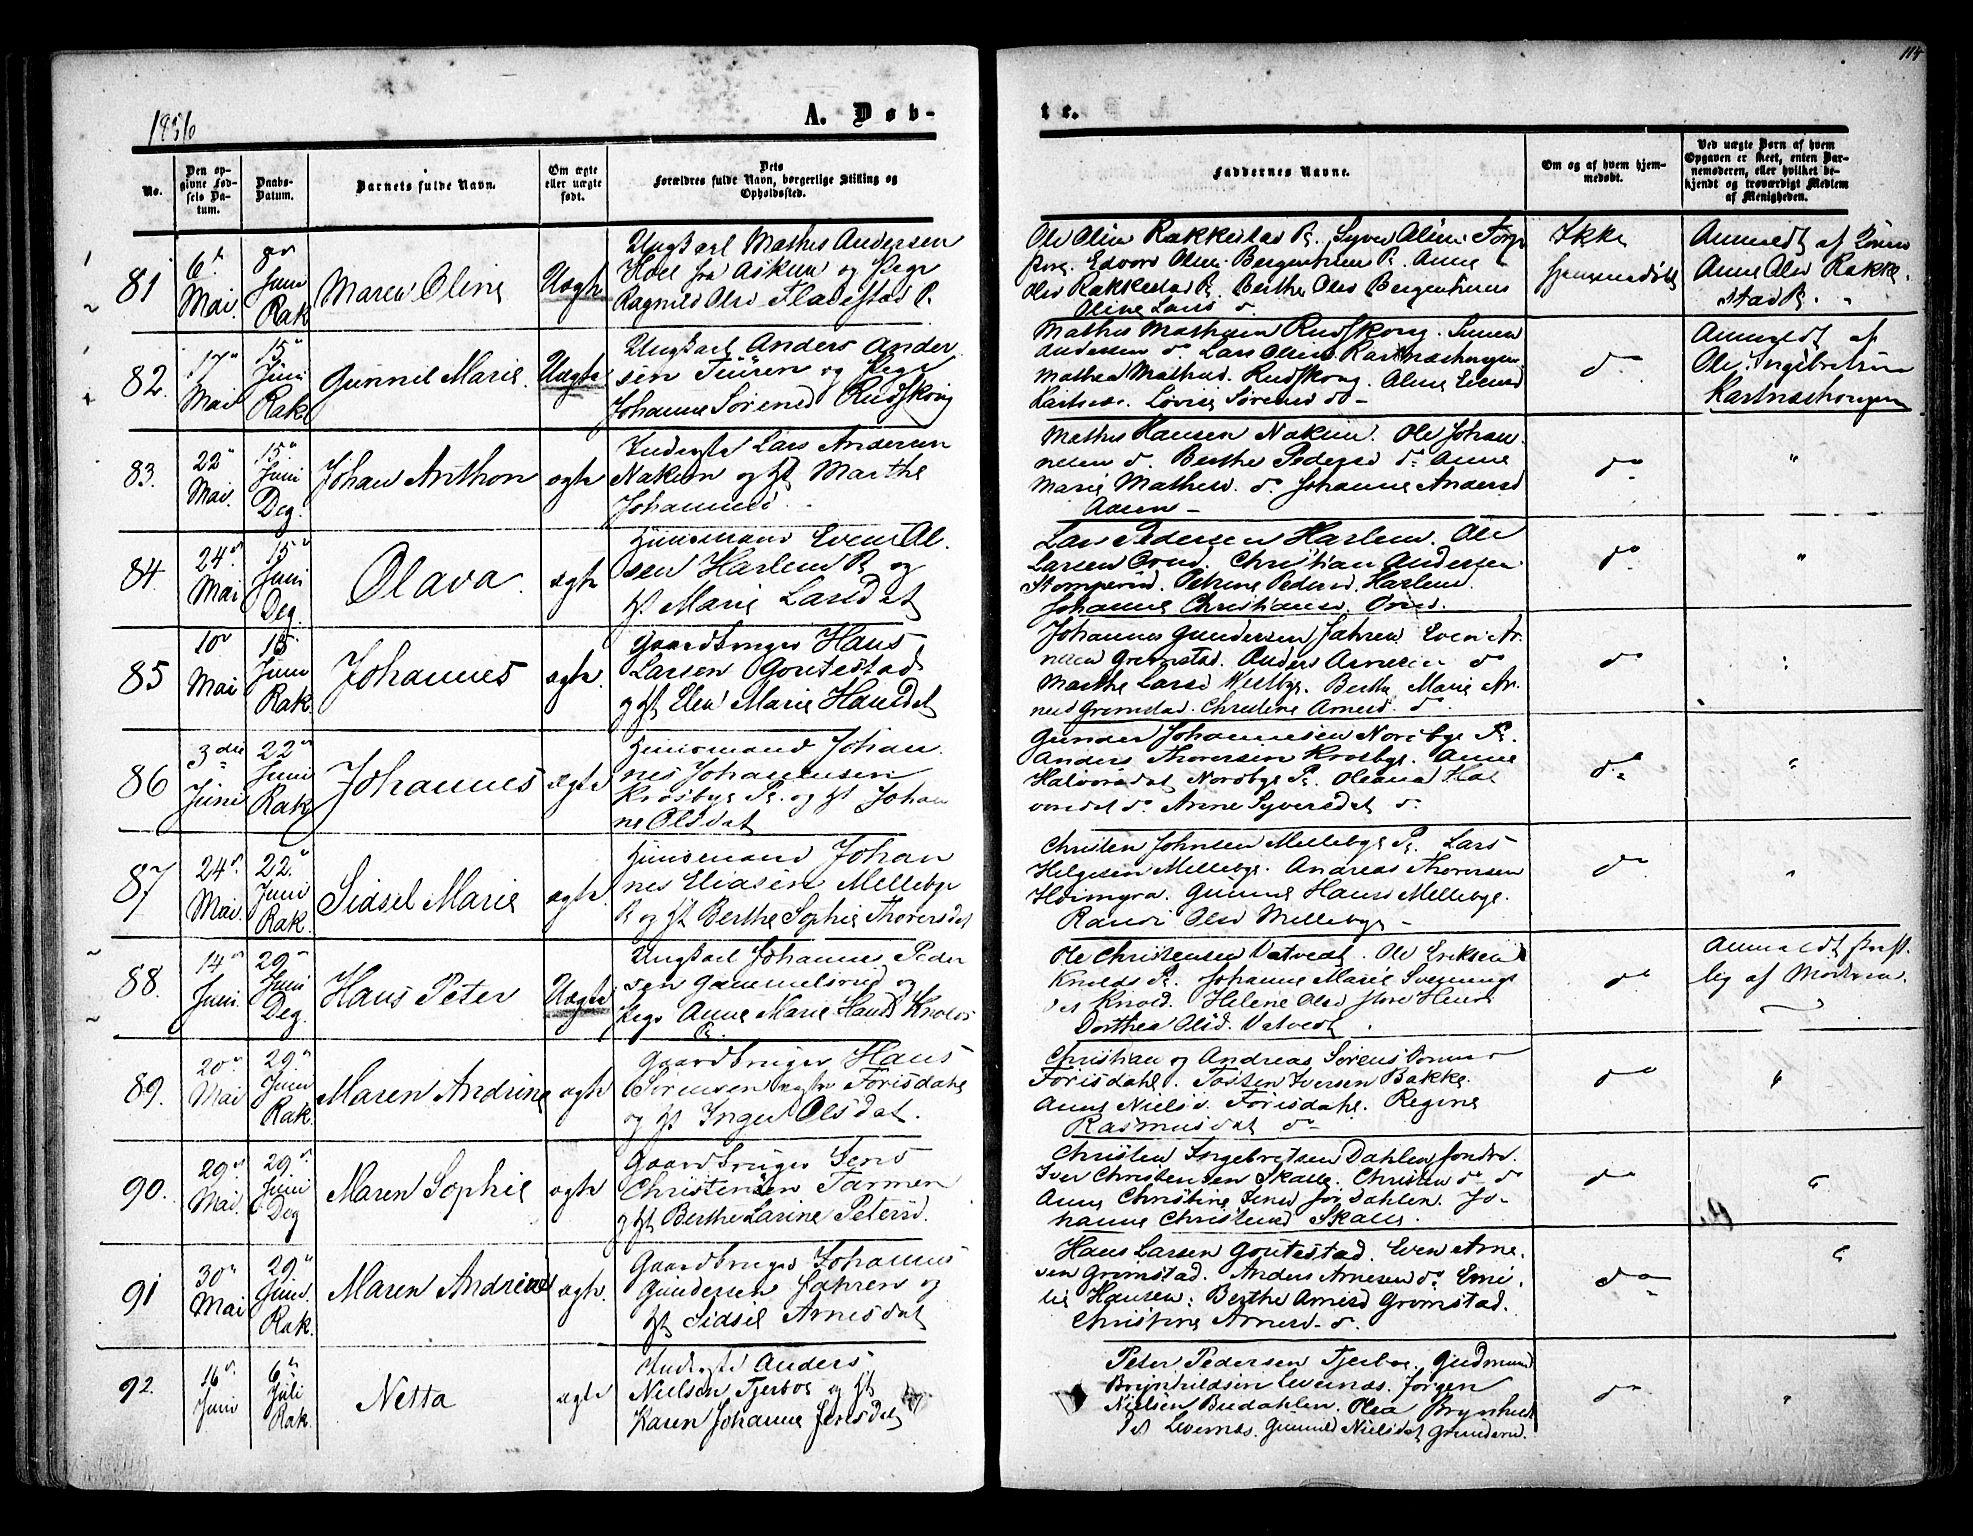 114
1856
A. Døb-
te.
No.
Den op-
givne Fød-
sels Da-
tum.
Daabs-
Datum.
Barnets fulde Navn.
Om ægte
eller uægte
født.
Dets
Forældres fulde Navn, borgerlige Stilling og
Opholdssted.
Faddernes Navne.
Om og af hvem hjem-
medøbt.
Ved uægte Børn af hvem
Opgaven er skeet, enten Bar-
nemoderen, eller hvilket be-
kjendt og troværdigt Medlem
af Menigheden.
81
6te
Mai.
8de
Juni
Rak
Maren Oline
Uægte
Ungkarl Mathis Andersen
fra Askim og Pige
Ragnild Olsd Fladestad P.
Ole Olsen Rakkestad P. Syver Olsen
Edvard Olsen Bergenhuus P. Anne
Olsd Rakkestad P. Berthe Olsd Bergenhuus
Oline Larsd do
Ikke
hjemmedøbt
Anmeldt af
Anne Olsd Rakke-
stad P.
82.
17
Mai
15
Juni
Rak
Gunnil Marie.
Uægte
Ungkarl Anders Ander
sen og Pige
Johanne Sørensd Rudskog
Mathis Mathisen Rudskog. Simen
Andersen do Lars Olsen
Mathea Mathisd. Rudskog.
Lovise Sørensd do
do
Anmeldt af
Ole Ingebretsen
83.
22
Mai.
15
Juni
Deg.
Johan Anthon
ægte
Inderste Lars Andersen
Nakim og H Marthe
Johannesd.
Mathis Hansen Nakim. Ole Johan-
nesen do. Berthe Pedersd do Anne
Marie Mathisd. do. Johanne Andersd
Aasen
do
"
84.
24de
Mai
15
Juni
Deg.
Olava.
ægte
Huusmand Even Ol-
sen Harlem P. og
H Marie Larsdat
Lars Pedersen Harlem. Ole
Larsen Christian Andersen
Petrine Pedersd. Harlem.
Johanne Christiansd.
do
"
85
10de
Mai
15
Juni
Rak.
Johannes
ægte.
Gaardbruger Hans
Larsen Goutestad
og H Elen Marie Hansdat
Johannes Gundersen Sahren Even Ar-
nesen Gremstad. Anders Arnesen do
Marthe Larsd Berthe Marie Ar-
nesd Gremstad. Christine Arnesd do
do
86
3die
Juni
22
Juni
Rak
Johannes
ægte
Huusmand Johan
nes Johannesen
Krosbye P. og H Johan
ne Olsdat
Gunder Johannesen Nordbye P.
Anders Thoresen Krosbye. Anne
Halvorsdat Nordbye P. Oleana Hal
vorsdat do Anne Syversdat do
do
"
87
24de
Mai.
22
Juni
Rak.
Sidsel Marie
ægte.
Huusmand Johan
nes Eliasen Mellebye
P og H Berthe Sophie Thoresdat
Christen Johnsen Mellebye P. Lars
Helgesen Mellebye. Andreas Thoresen
Gunne Hansd Mellebye.
Randi Olsd Mellebye
do
"
88.
14de
Juni.
29
Juni
Deg.
Hans Peter
Uægte
Ungkarl Johannes Peder
sen Gammelsrud og
Pige Anne Marie Hansd
P.
Ole Christensen Vatvedt. Ole Eriksen
Johanne Marie
Helene Olsd
Dorthea Olsd. Vatvedt.
do
Anmeldt skrift-
lig af Moderen
89.
20de
Mai
29
Juni
Rak.
Maren Andrine
ægte
Gaardbruger Hans
Sørensen Forisdahl
og H Inger Olsdat.
Christian og Andreas Sørens Sønner
Forisdahl. Tosten Iversen Bakke.
Anne Nielsd. Forisdahl. Regine
Rasmusdat do
do
"
90.
29de
Mai.
29
Juni
Deg
Maren Sophie
ægte
Gaardbruger Jens
Christensen Tarmen
og H Berthe Larine Petersd.
Christen Ingebretsen Dahlen søndre.
Iver Christensen Skalle. Christen do do
Anne Christine Jensd Dahlen. Jo-
hanne Christensd Skalle.
do
"
91
30
Mai
29
Juni.
Rak.
Maren Andrine
ægte.
Gaardbruger Johannes
Gundersen Sahren og
H Sidsil Arnesdat
Hans Larsen Goutestad. Even Arne-
sen Gremstad. Anders Arnesen do Emi-
lie Hansen. Berthe Arnesd Gremstad.
Christine Arnesd. do.
do
"
92.
16de
Juni
6te
Juli
Rak.
Netta
ægte
Inderste Anders
Nielsen Tjerboe og H
Karen Johanne Jensdat
Peter Pedersen Tjerboe. Gudmund
Brynhildsen Levernæs. Jørgen
Nielsen Budahlen. Olea Brynhild
dat Levernæs. Gunnild Nielsdat
do
"